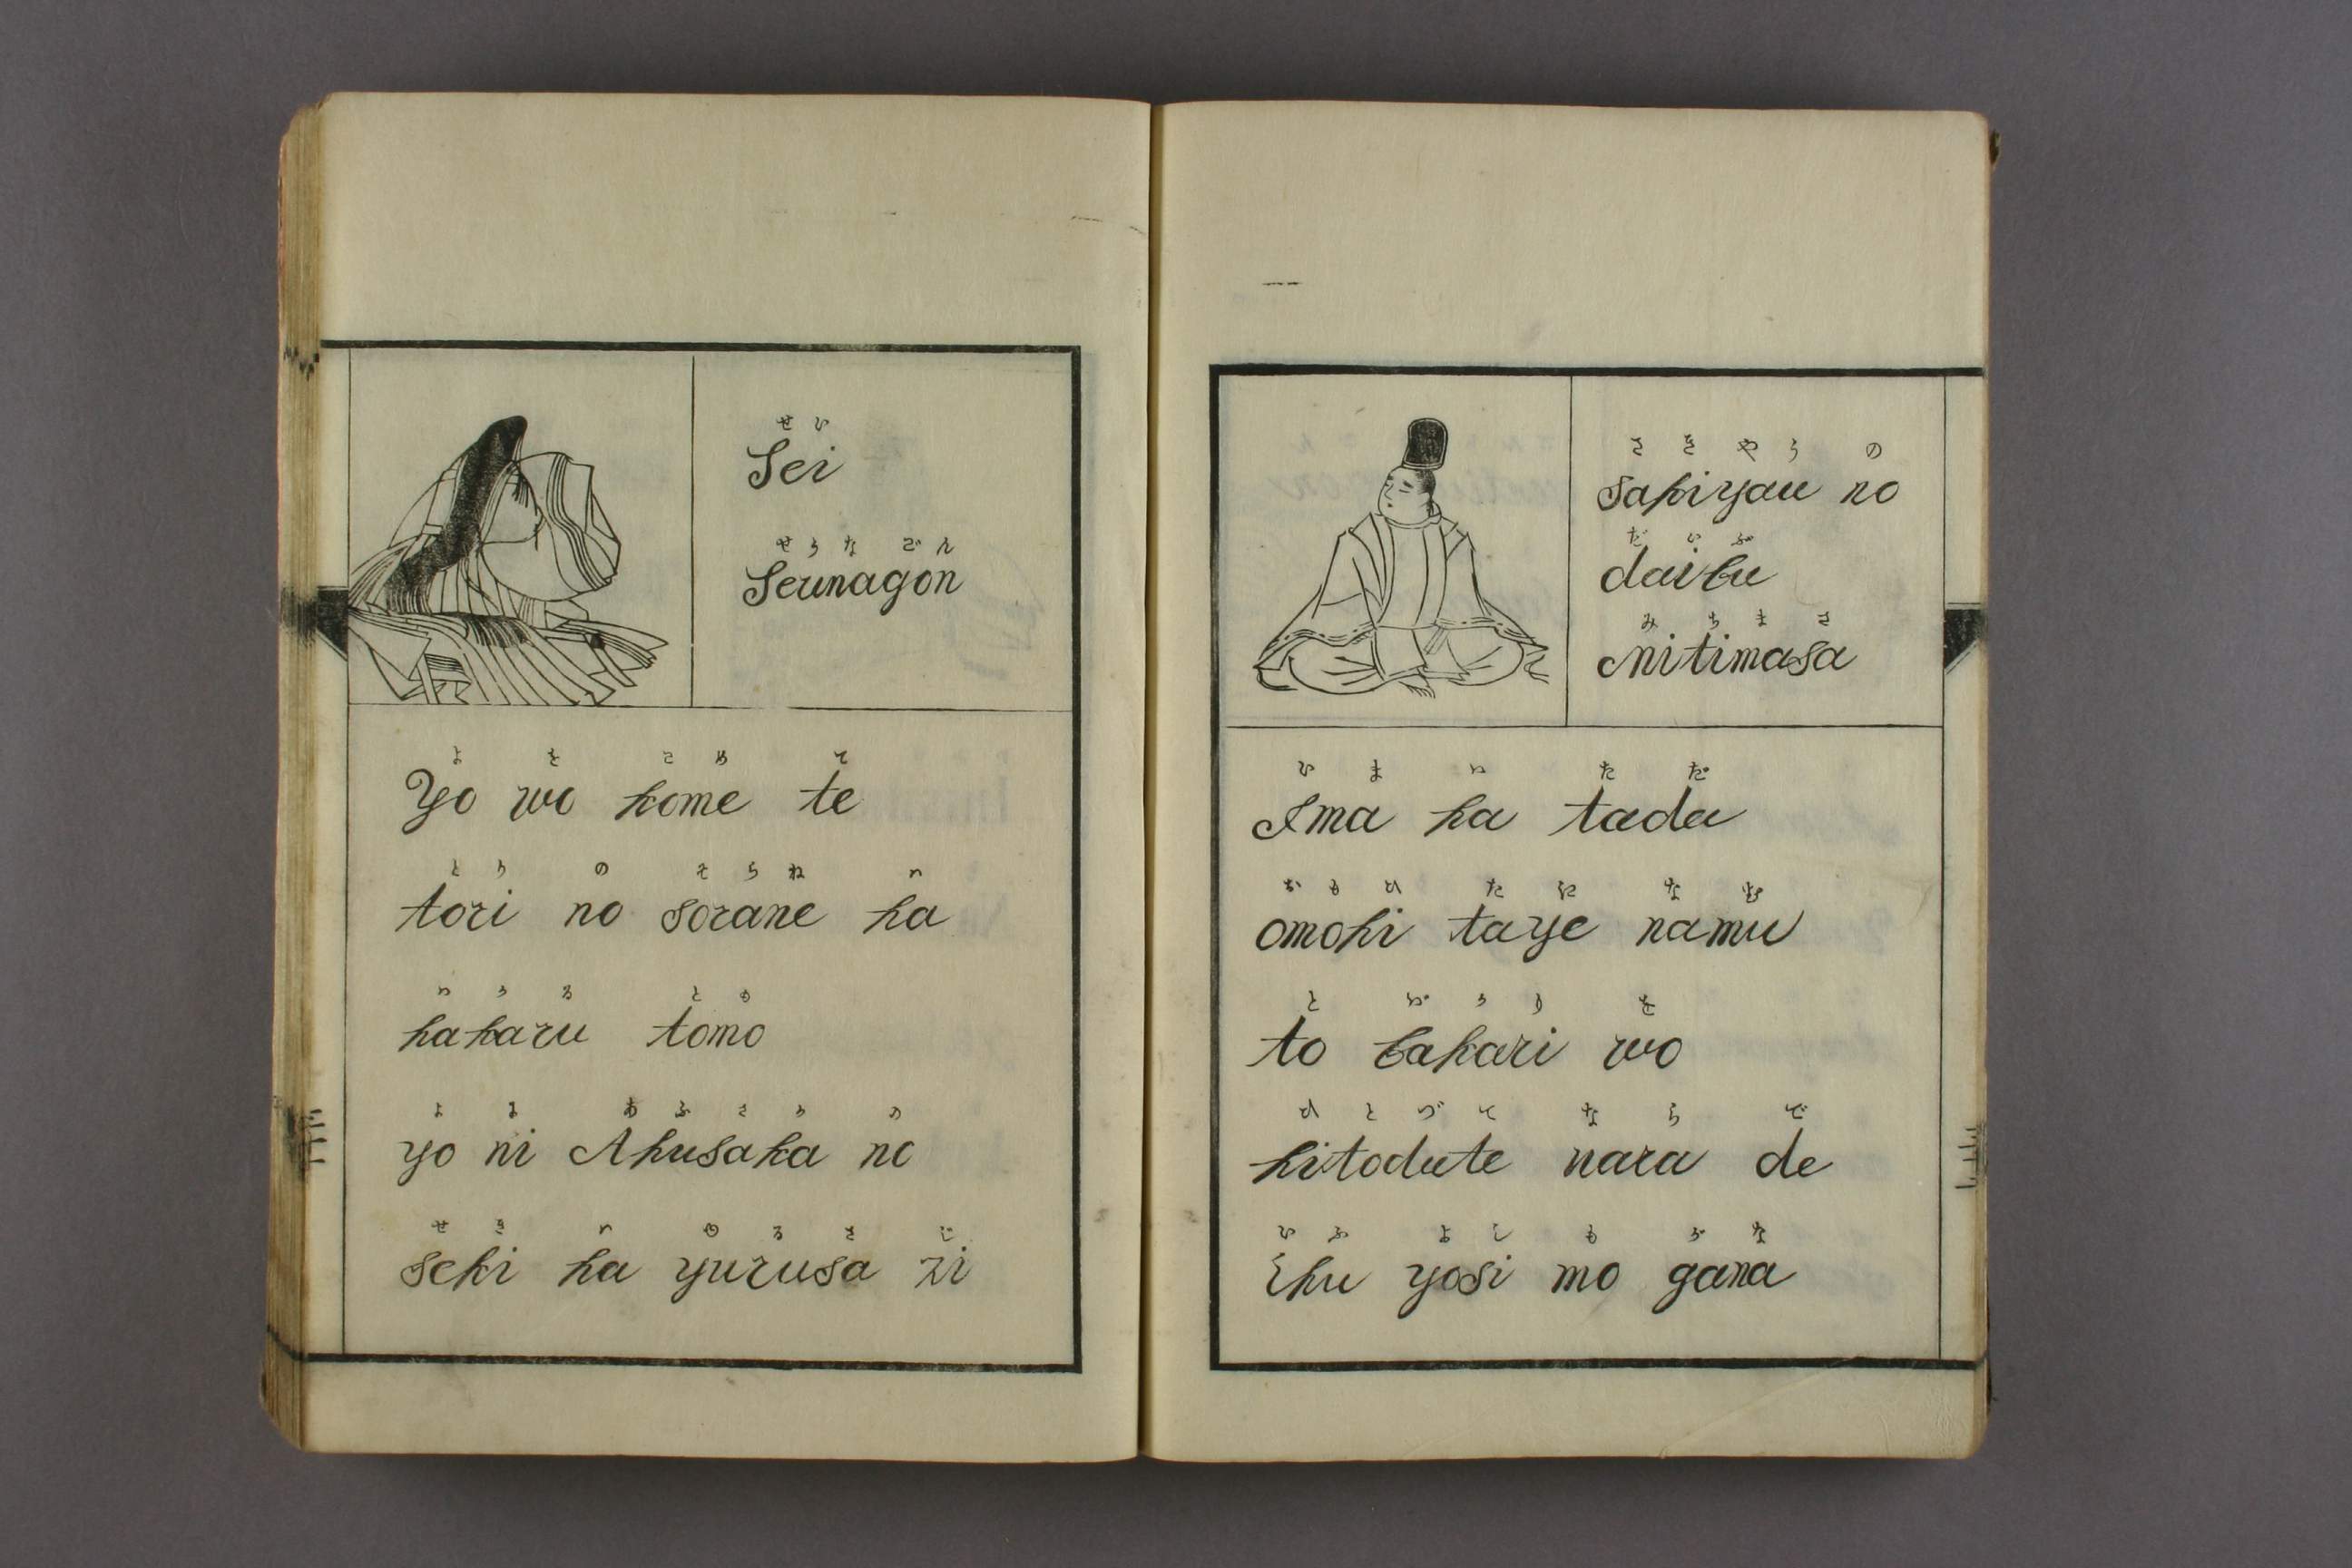 せい
Sei
せうな ごん
Seunagon
よ を こめ て
Yo wo kome te
とり の そらね は
tori no sorane ha
はかる とも
hakaru tomo
よ に あふさか の
yo ni Ahusaka no
せき は ゆるさ じ
seki ha yurusa zi
さきやう の
Sakiyau no
だいぶ
daibu
みちまさ
Mitimasa
いま は ただ
Ima ha tada
おもひ たえ なむ
omohi taye namu
と ばかり を
to bakari wo
ひとづて なら で
hitodute nara de
いふ よし も がな
ihu yosi mo gana